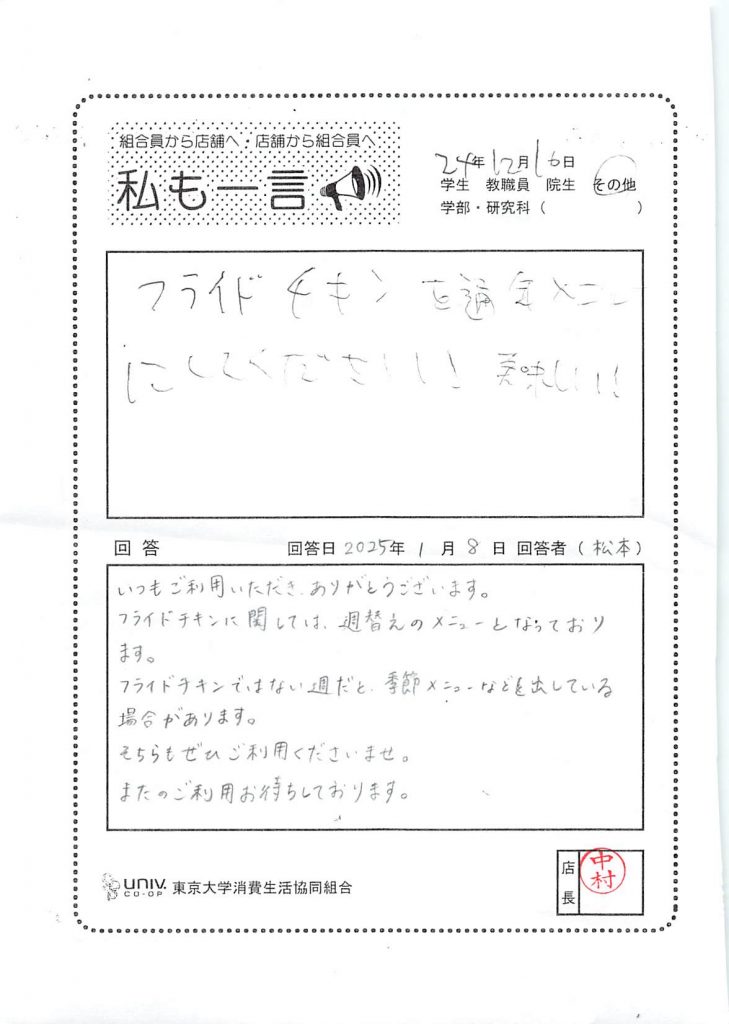 組合員から店舗へ・店舗から組合員へ
私も一言
24年12月16日
学生 教職員 院生 その他
学部・研究科( )
フライドチキンを通年メニュー
にしてください! 美味しい!!
回答 回答日2025年1月8日 回答者(松本)
いつもご利用いただき、ありがとうございます。
フライドチキンに関しては、週替えのメニューとなっており
ます。
フライドチキンではない週だと、季節メニューなどを出している
場合があります。
そちらもぜひご利用くださいませ。
またのご利用お待ちしております。
UNIV. CO-OP 東京大学消費生活協同組合
店長 中村